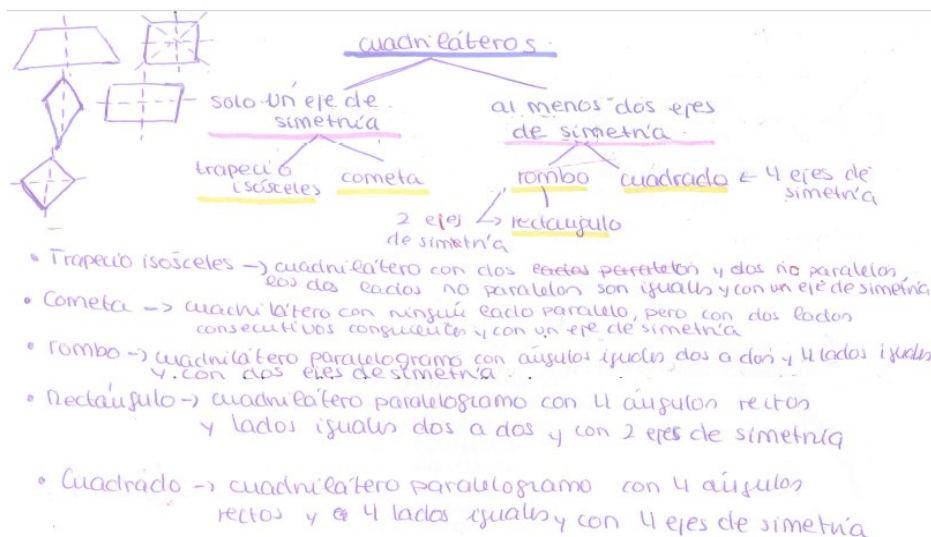 cuadriláteros.
solo un eje de
simetría
al menos dos ejes
de simetría.
trapecio
isósceles
cometa
rombo
cuadrado ← 4 ejes de
simetría
2 ejes
de simetría
→ rectángulo
• Trapecio isósceles → cuadrilátero con dos lados paralelos y dos no paralelos,
los dos lados no paralelos son iguales y con un eje de simetría
• Cometa → cuadrilátero con ningún lado paralelo, pero con dos lados
consecutivos congruentes y con un eje de simetría
• rombo → cuadrilátero paralelogramo con ángulos iguales dos a dos y 4 lados iguales
y con dos ejes de simetría.
• Rectángulo → cuadrilátero paralelogramo con 4 ángulos rectos
y lados iguales dos a dos y con 2 ejes de simetría
• Cuadrado → cuadrilátero paralelogramo con 4 ángulos
rectos y 4 lados iguales y con 4 ejes de simetría